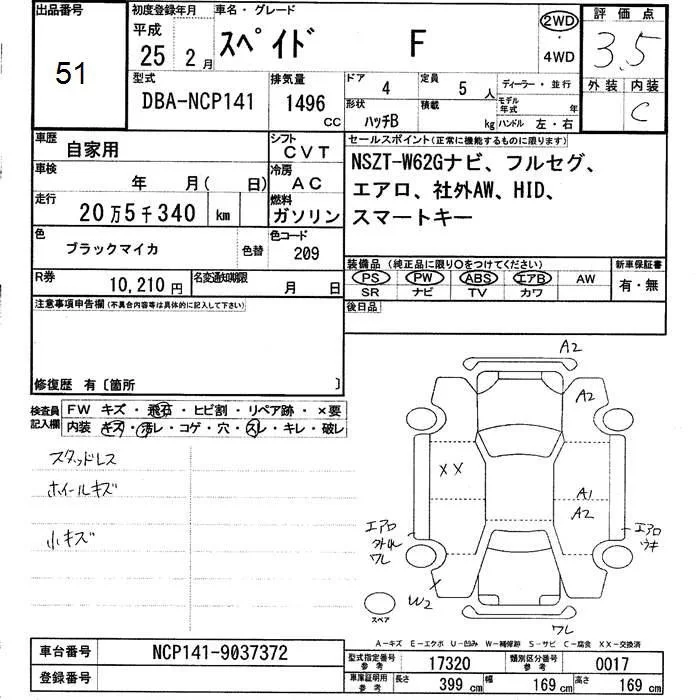 出品番号 初度登録年月 車名・グレード 評価点
51 平成 25年 2月 スペイド F 2WD 4WD 3.5
型式 排気量 ドア 4 定員 5人 ディーラー・並行 外装 内装
DBA-NCP141 1496 CC 形状 ハッチB 積載 kg モデル年式 年 ハンドル 左・右 C
車歴 自家用 シフト CVT セールスポイント(正常に機能するものに限ります)
車検 年 月( 日) 冷房 AC NSZT-W62Gナビ、フルセグ、
走行 20万5千340 km 燃料 ガソリン エアロ、社外AW、HID、
スマートキー
色 ブラックマイカ 色替 色コード 209
装備品(純正品に限り○をつけてください) 新車保証書
R券 10,210円 名変通知期限 月 日 PS PW ABS エアB AW 有・無
SR ナビ TV カワ
注意事項申告欄(不具合内容等は具体的に記入して下さい) 後日品
修復歴 有〔箇所 〕
検査員記入欄 FW キズ・飛石・ヒビ割・リペア跡・×要
内装 キズ・汚レ・コゲ・穴・スレ・キレ・破レ
スタッドレス
ホイールキズ
小キズ
A2
A2
XX
A1
A2
エアロ
ワレ
エアロ
ウキ
W2
スペア
ワレ
A-キズ E-エクボ U-凹み W-補修跡 S-サビ C-腐食 XX-交換済
車台番号 NCP141-9037372 型式指定番号 参考 17320 類別区分番号 参考 0017
登録番号 車庫証明用 参考 長さ 399 cm 幅 169 cm 高さ 169 cm